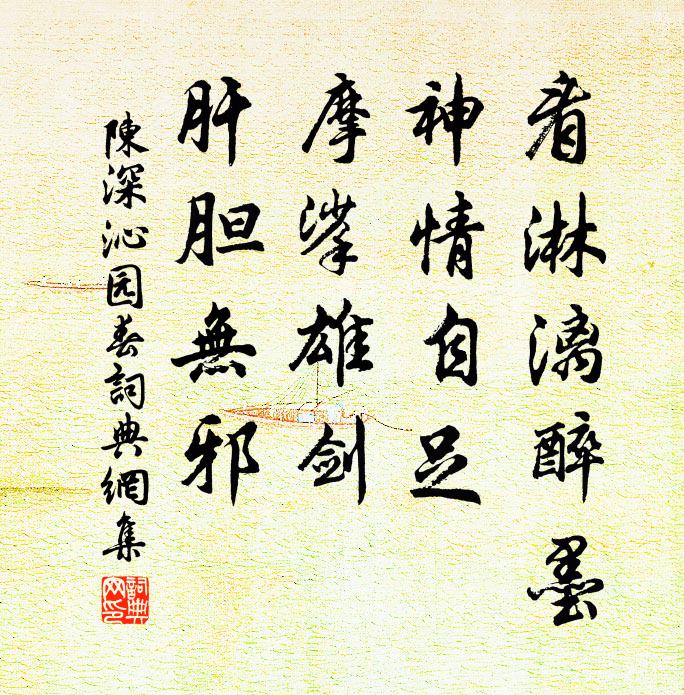 看淋漓醉墨
神情自足
摩挲雄剑
肝胆無邪
陳深沁园春詞典網集
詞典网印